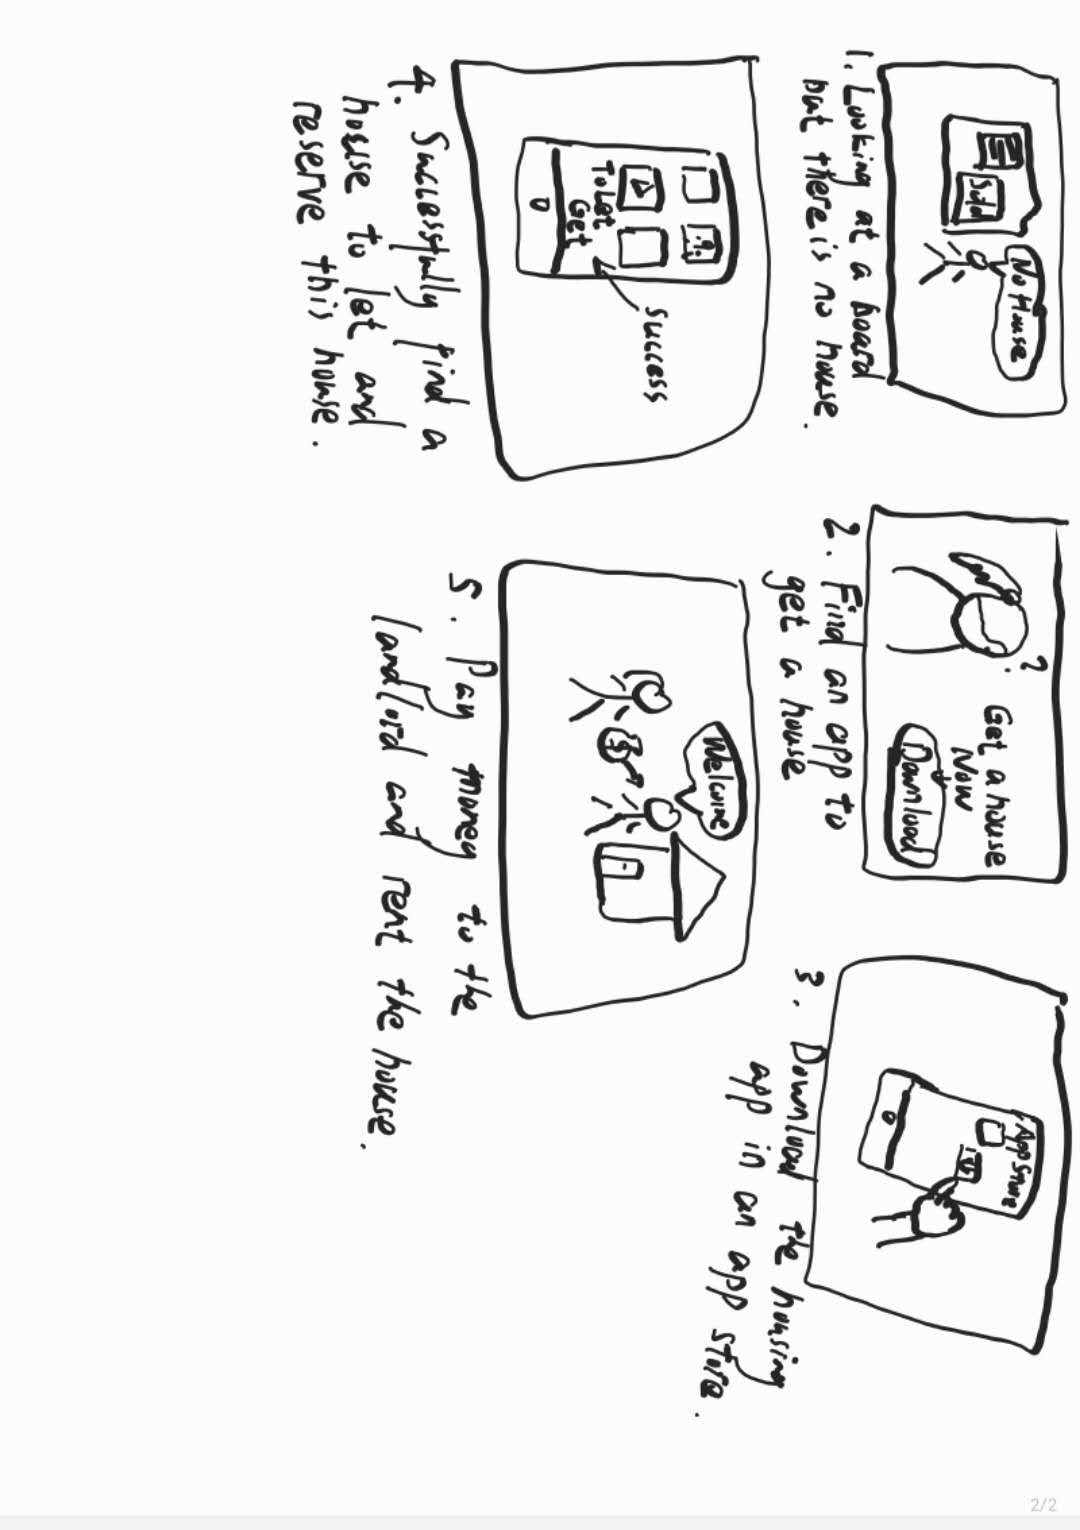 No House
Sold
1. Looking at a board
but there is no house.
?
Get a house
Now
Download
2. Find an app to
get a house
App Store
3. Download the housing
app in an app store.
To Let
Get
Success
4. Successfully find a
house to let and
reserve this house.
Welcome
$
5. Pay money to the
landlord and rent the house.
2/2